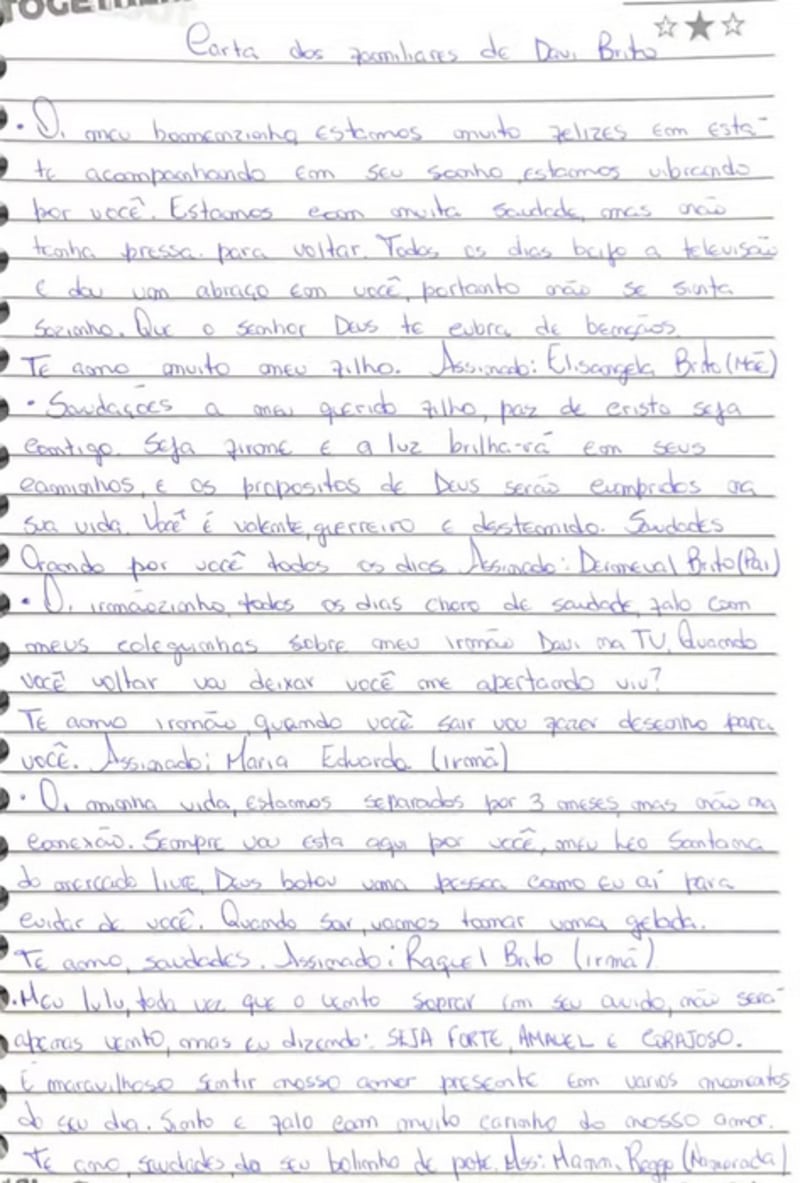 TOGETHER
Carta dos familiares de Davi Brito
• Oi meu homenzinho estamos muito felizes em está
te acompanhando em seu sonho, estamos vibrando
por você. Estamos com muita saudade, mas não
tenha pressa para voltar. Todos os dias beijo a televisão
e dou um abraço em você, portanto não se sinta
sozinho. Que o senhor Deus te cubra de bençãos.
Te amo muito meu filho. Assinado: Elisangela Brito (Mãe)
• Saudações a meu querido filho, paz de cristo seja
contigo. Seja firme e a luz brilha-rá em seus
caminhos, e os propositos de Deus serão cumpridos na
sua vida. Você é valente, guerreiro e destemido. Saudades
Orando por você todos os dias Assinado: Demeval Brito (Pai)
• Oi irmãozinho, todos os dias choro de saudade, falo com
meus coleguinhas sobre meu irmão Davi na TV. Quando
você voltar vou deixar você me apertando viu?
Te amo irmão, quando você sair vou fazer desenho para
você. Assinado: Maria Eduarda (irmã)
• Oi minha vida, estamos separados por 3 meses, mas não na
conexão. Sempre vou esta aqui por você, meu Leo Santana
do mercado livre, Deus botou uma pessoa como eu aí para
cuidar de você. Quando sair, vamos tomar uma gelada.
Te amo, saudades. Assinado: Raquel Brito (irmã)
• Meu lulu, toda vez que o vento soprar em seu ouvido, não será
apenas vento, mas eu dizendo: SEJA FORTE, AMAVEL E CORAJOSO.
É maravilhoso sentir nosso amor presente em varios momentos
do seu dia. Sinto e falo com muito carinho do nosso amor.
Te amo, saudades, do seu bolinho de pote. Ass: Mamm. Rego (Namorada)